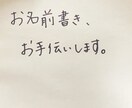 お名前書き、
お手伝いします。